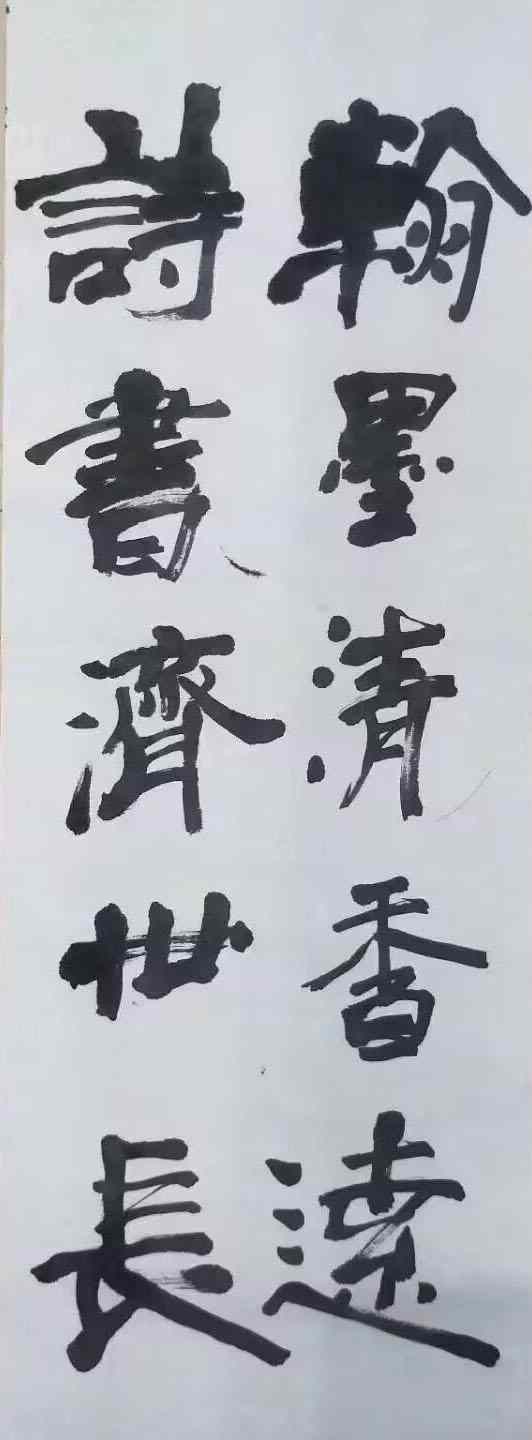 翰墨清香遠
詩書濟世長